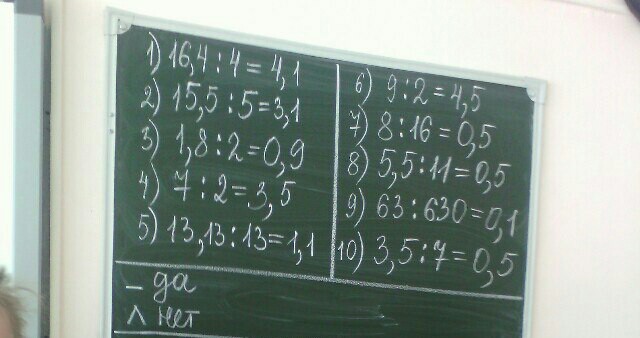 1) 16,4 : 4 = 4,1
2) 15,5 : 5 = 3,1
3) 1,8 : 2 = 0,9
4) 7 : 2 = 3,5
5) 13,13 : 13 = 1,1
6) 9 : 2 = 4,5
7) 8 : 16 = 0,5
8) 5,5 : 11 = 0,5
9) 63 : 630 = 0,1
10) 3,5 : 7 = 0,5
– да
∧ нет